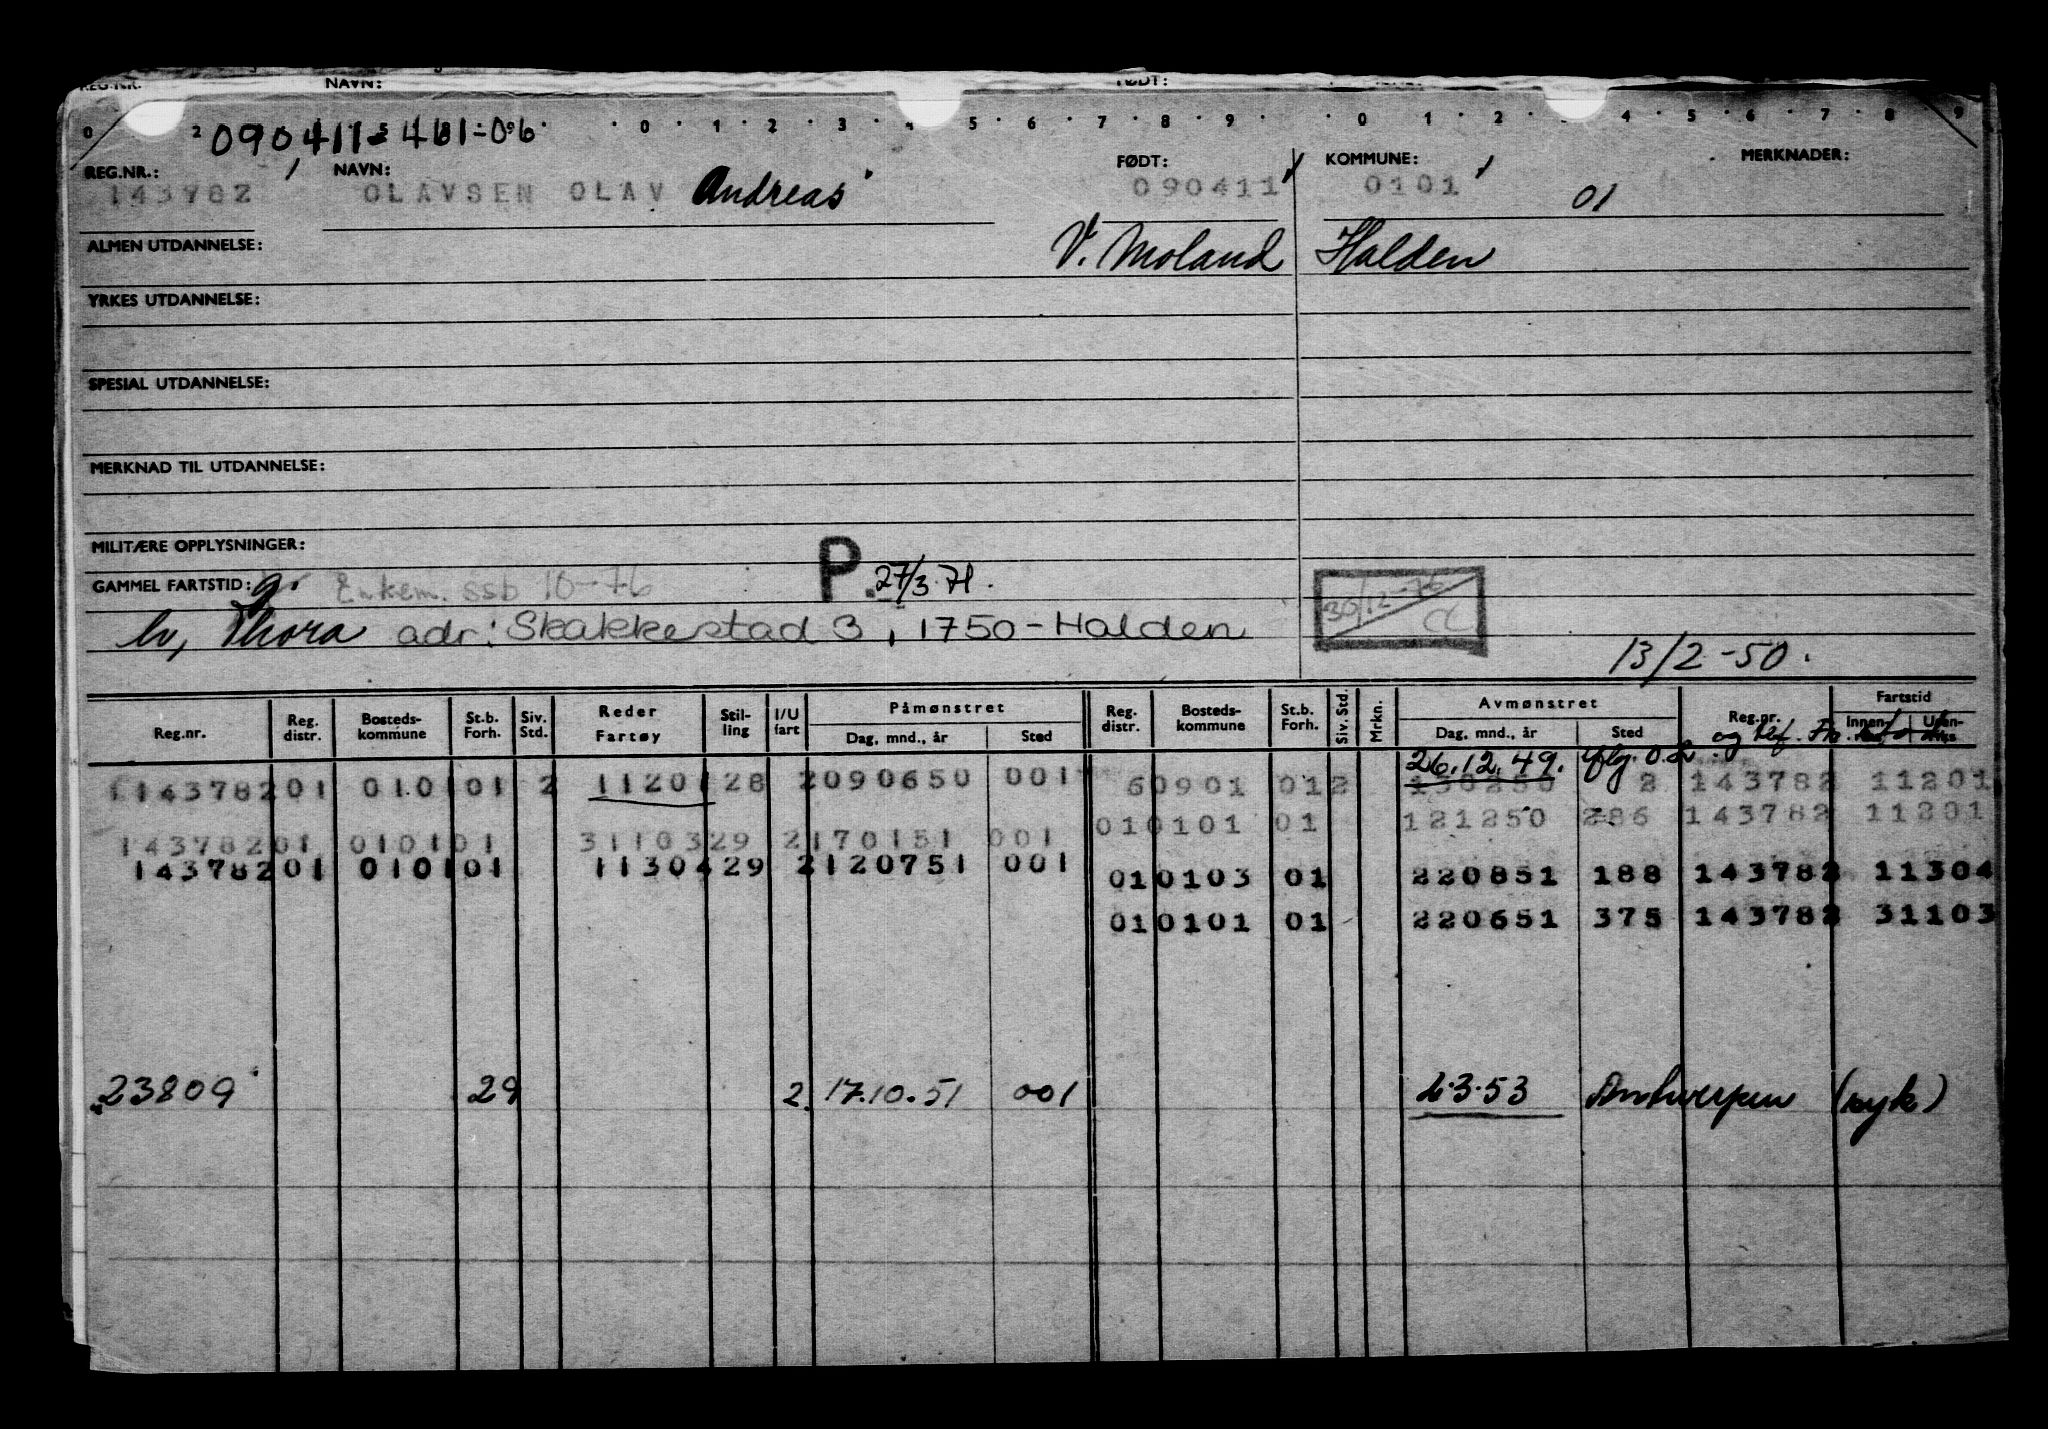 REG.NR. NAVN: FØDT:
0 2 0 1 2 3 4 5 6 7 8 9 0 1 2 4 5 6 7 8 9
090411 - 461-06
REG.NR.: NAVN: FØDT: KOMMUNE: MERKNADER:
143782 OLAVSEN OLAV Andreas 090411 0101 01
ALMEN UTDANNELSE: V. Moland Halden
YRKES UTDANNELSE:
SPESIAL UTDANNELSE:
MERKNAD TIL UTDANNELSE:
MILITÆRE OPPLYSNINGER:
GAMMEL FARTSTID: g. Enkem. ssb 10-76 P. 27/3.71. 30/12-76
hv, Thora adr: Skakkestad 3, 1750-Halden
13/2-50.
Reg.nr. Reg. distr. Bosteds-kommune St.b. Forh. Siv. Std. Reder Fartøy Stil-ling I/U fart Påmønstret Dag, mnd., år Sted Reg. distr. Bosteds-kommune St.b. Forh. Siv. Std. Mrkn. Avmønstret Dag, mnd., år Sted Reg.nr. Fartstid
26.12.49.
143782 01 0101 01 2 11201 28 2 090650 001 60901 01 2 130250 2 143782 11201
010101 01 121250 286 143782 11201
143782 01 0101 01 31103 29 2 170151 001
143782 01 0101 01 11304 29 2 120751 001 010103 01 220851 188 143782 11304
010101 01 220651 375 143782 31103
23809 29 2. 17.10.51 001 2.3.53 Antwerpen (syk)